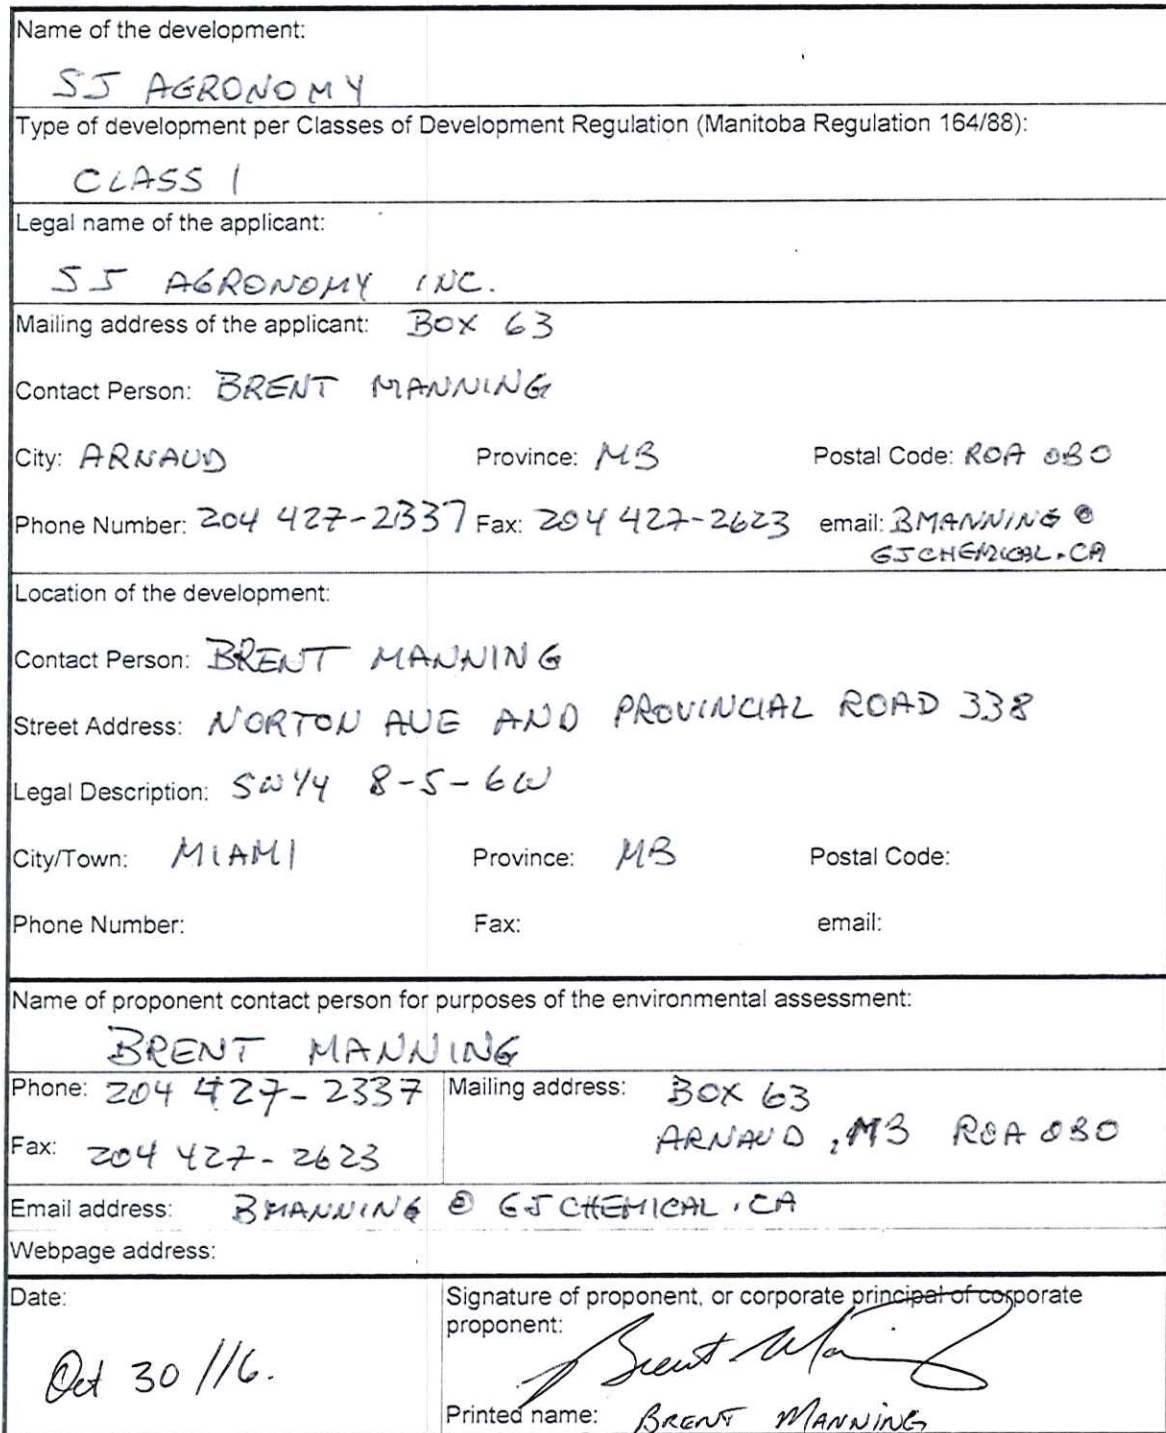 Name of the development:
SJ AGRONOMY
Type of development per Classes of Development Regulation (Manitoba Regulation 164/88):
CLASS 1
Legal name of the applicant:
SJ AGRONOMY INC.
Mailing address of the applicant: BOX 63
Contact Person: BRENT MANNING
City: ARNAUD Province: MB Postal Code: R0A 0B0
Phone Number: 204 427-2337 Fax: 204 427-2623 email: BMANNING @
GJCHEMICAL.CA
Location of the development:
Contact Person: BRENT MANNING
Street Address: NORTON AVE AND PROVINCIAL ROAD 338
Legal Description: SW 1/4 8-5-6W
City/Town: MIAMI Province: MB Postal Code:
Phone Number: Fax: email:
Name of proponent contact person for purposes of the environmental assessment:
BRENT MANNING
Phone: 204 427-2337 Mailing address: BOX 63
ARNAUD, MB R0A 0B0
Fax: 204 427-2623
Email address: BMANNING @ GJCHEMICAL.CA
Webpage address:
Date: Signature of proponent, or corporate principal of corporate
proponent:
Oct 30/16. Brent Manning
Printed name: BRENT MANNING